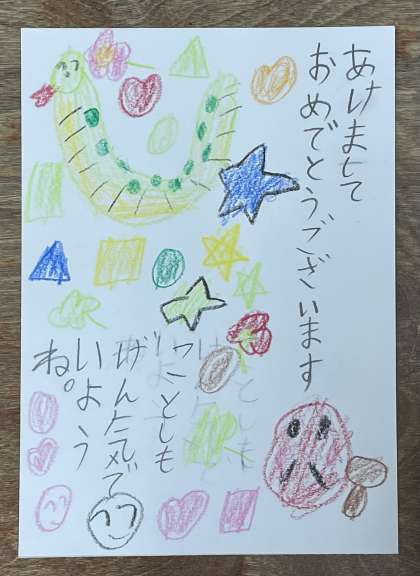 あけまして
おめでとうございます
ことしも
げん気で
いよう
ね。